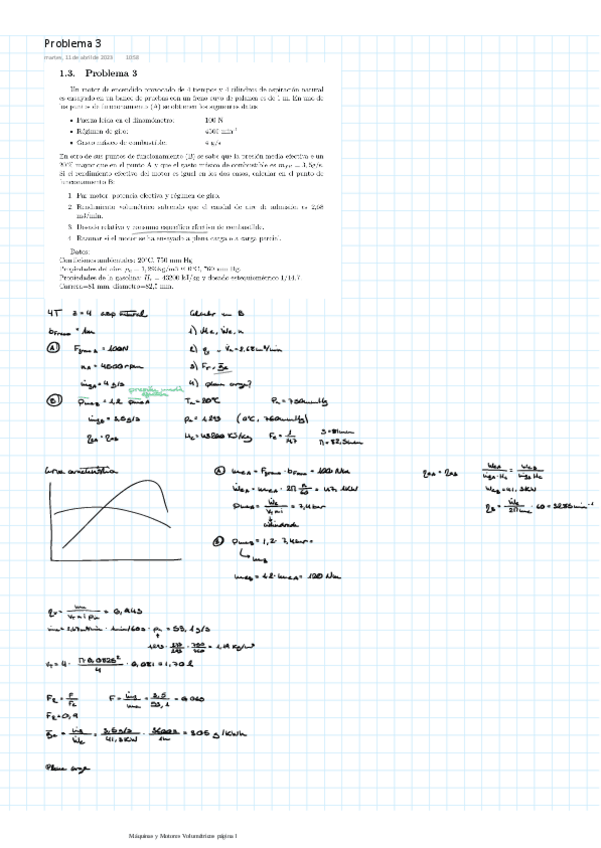 Problema 3
martes, 11 de abril de 2023 10:50
1.3. Problema 3
Un motor de encendido provocado de 4 tiempos y 4 cilindros de aspiración natural
es ensayado en un banco de pruebas con un freno cuyo de palanca es de 1 m. En uno de
los puntos de funcionamiento (A) se obtienen los siguientes datos:
• Fuerza leída en el dinamómetro: 100 N
• Régimen de giro: 4000 min⁻¹
• Gasto másico de combustible: 4 g/s
En otro de sus puntos de funcionamiento (B) se sabe que la presión media efectiva e un
20% mayor que en el punto A y que el gasto másico de combustible es = 3,5g/s.
Si el rendimiento efectivo del motor es igual en los dos casos, calcular en el punto de
funcionamiento B:
1. Par motor, potencia efectiva y régimen de giro.
2. Rendimiento volumétrico sabiendo que el caudal de aire de admisión es 2,68
m3/min.
3. Dosado relativo y consumo específico efectivo de combustible.
4. Razonar si el motor se ha ensayado a plena carga o a carga parcial.
Datos:
Condiciones ambientales: 20°C, 750 mm Hg.
Propiedades del aire: = 1,293kg/m3 0°C, 760 mm Hg.
Propiedades de la gasolina: = 43200 kJ/kg y dosado estequiométrico 1/14.7
Carrera=81 mm, diámetro=82,5 mm.
4T z=4 asp natural Calcular en B
b_freno = 1m 1) Me, Ẇe, n
(A) F_freno = 100N 2)
n_A = 4000 rpm 3) Fr,
ṁ_fA = 4 g/s 4) plena carga?
presión media
efectiva
(B) = 1,2 T_a=20°C P_a=750mmHg
= 3.5g/s = 1.293 (0°C, 760mmHg)
η_eA = η_eB H_c=43200 KJ/kg F_e = 1/14.7 S=81mm
D=82,5mm
Curva característica
(A) M_eA = F_freno · b_freno = 100 Nm
Ẇ_eA = M_eA · 2π n/60 = 41,9KW
= 7,4bar
cilindrada
(B) = 1,2 · 7,4bar =
M_eB = 1.2 · M_eA = 120 Nm
η_eA = η_eB
= 41.3KW
· 60 =
= 0,943
· 1min/60s ·
1.293 · 273/293 · 750/760 = 1.19 Kg/m³
V_T = 4 · π·0.0825²/4 · 0,081 = 1,70 l
F_R = F/F_e F = = 0.060
F_R = 0,9
= 3.5g/s / 41,3KW · 3600s/1h = 305 g/kWh
Plena carga
Máquinas y Motores Volumétricos página 1